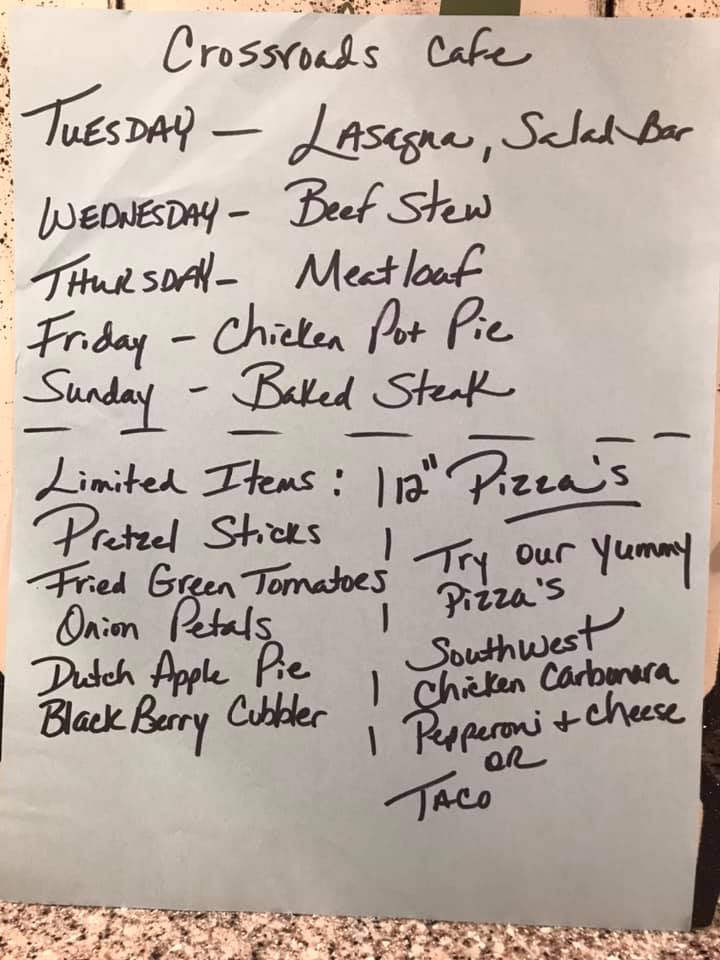 Crossroads Cafe
TUESDAY — LASagna, Salad Bar
WEDNESDAY - Beef Stew
THURSDAY - Meatloaf
Friday - Chicken Pot Pie
Sunday - Baked Steak
Limited Items:
Pretzel Sticks
Fried Green Tomatoes
Onion Petals
Dutch Apple Pie
BlackBerry Cubbler
12" Pizza's
Try our Yummy
Pizza's
Southwest
Chicken Carbonara
Pepperoni + Cheese
OR
TACO